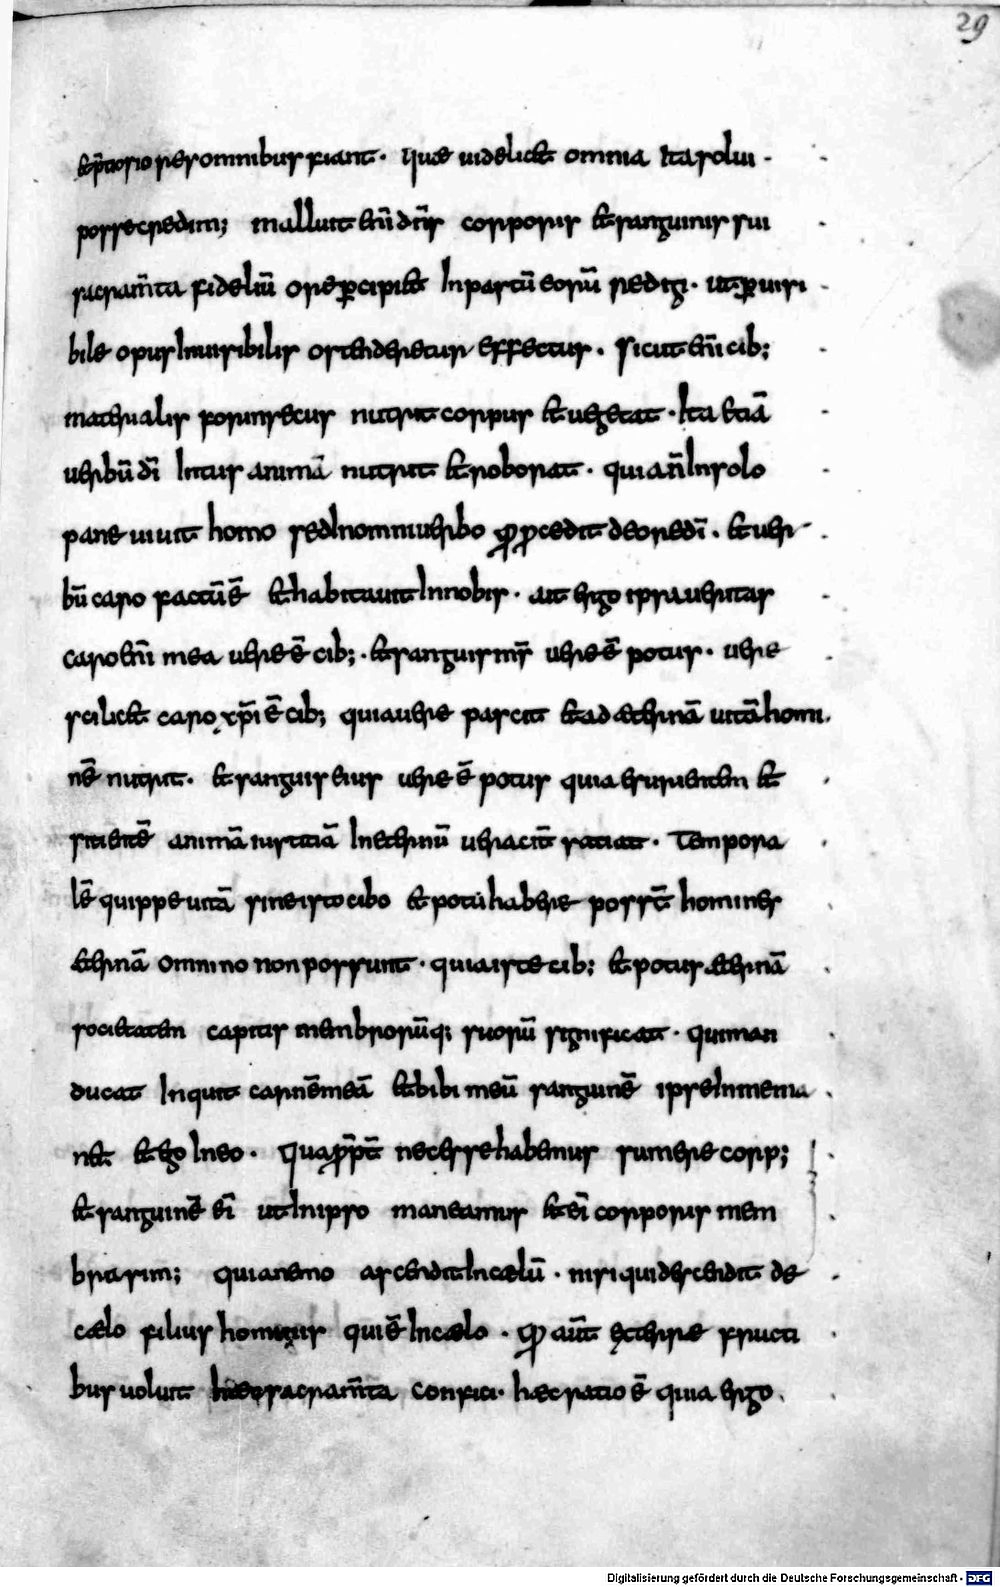 29
et p̄ciosio per omnibus fiant. Quae uidelicet omnia Ita solui.
posse credim; malluit eni dn̄s corporis et sanguinis sui
sacram̄ta fideliū ore ꝑcipi et In partū eorū redigi. ut ꝑ uisi
bile opus Inuisibilis ostenderetur effectus. Sicut eni cib;
materialis forinsecus nutrit corpus et uegetat. Ita etiā
uerbū dī Intus animā nutrit et roborat. quia n̄ In solo
pane uiuit homo sed In omni uerbo q̄ ꝓcedit de ore dī. et uer
bū caro factū ē et habitauit In nobis. ait ergo ipsa ueritas
caro eni mea uere ē cib;. et sanguis ms̄ uere ē potus. uere
scilicet caro xp̄i ē cib; quia uere pascit et ad aeternā uitā homi
nē nutrit. et sanguis eius uere ē potus quia esurientem et
sitientē animā iustitiā In eternū ueracit̄ satiat. Tempora
lē quippe uitā sine isto cibo et potū habere posst̄ homines
aeternā omnino non possunt. quia iste cib; et potus aeternā
societatem capitis membrorūq; suorū significat. qui man
ducat Inquit carnē meā et bibi meū sanguinē ipse In me ma
net et ego In eo. Quaprop̄t nec esse habemus sumere corp;
et sanguinē eī ut In ipso maneamus et eī corporis mem
bra sim; quia nemo ascendit In caelū. nisi qui descendit de
caelo filius hominis qui ē In caelo. Q aut̄ ę terre fructi
bus uoluit haec sacram̄ta confici. haec ratio ē quia ergo
Digitalisierung gefördert durch die Deutsche Forschungsgemeinschaft - DFG